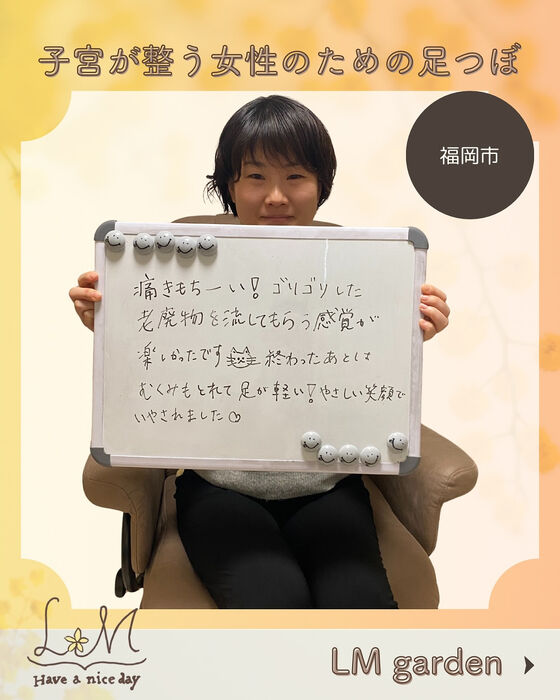 子宮が整う女性のための足つぼ
福岡市
痛きもちーい！ゴリゴリした
老廃物を流してもらう感覚が
楽しかったです 終わったあとは
むくみもとれて足が軽い！やさしい笑顔で
いやされました♡
LM
Have a nice day
LM garden